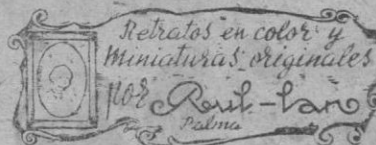 Retratos en color y
Miniaturas originales
por Rul-lan
Palma